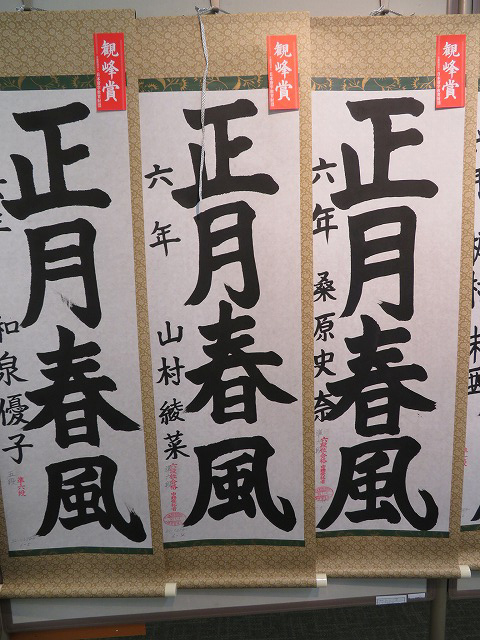 観峰賞
正月春風
六年 桑原史奈
観峰賞
正月春風
六年 山村綾菜
観峰賞
正月春風
和泉優子
準六段